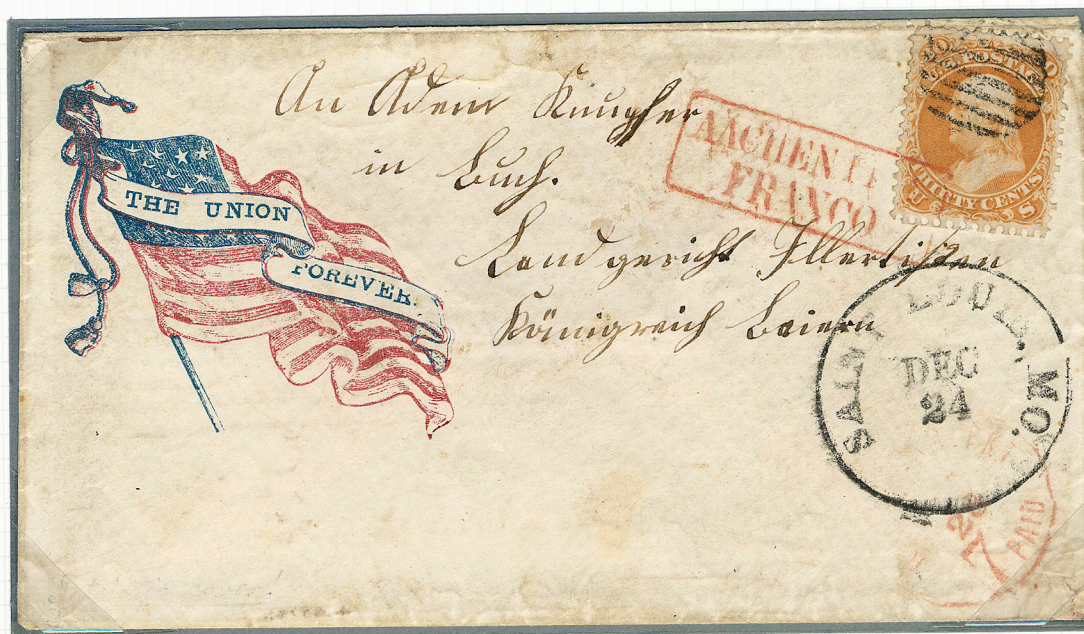 THE UNION
FOREVER.
An Adem Knupfer
in Buch.
Landgericht Illertissen
Königreich Beiern
AACHEN
FRANCO
THIRTY CENTS
SAINT LOUIS, MO.
DEC
24
PAID